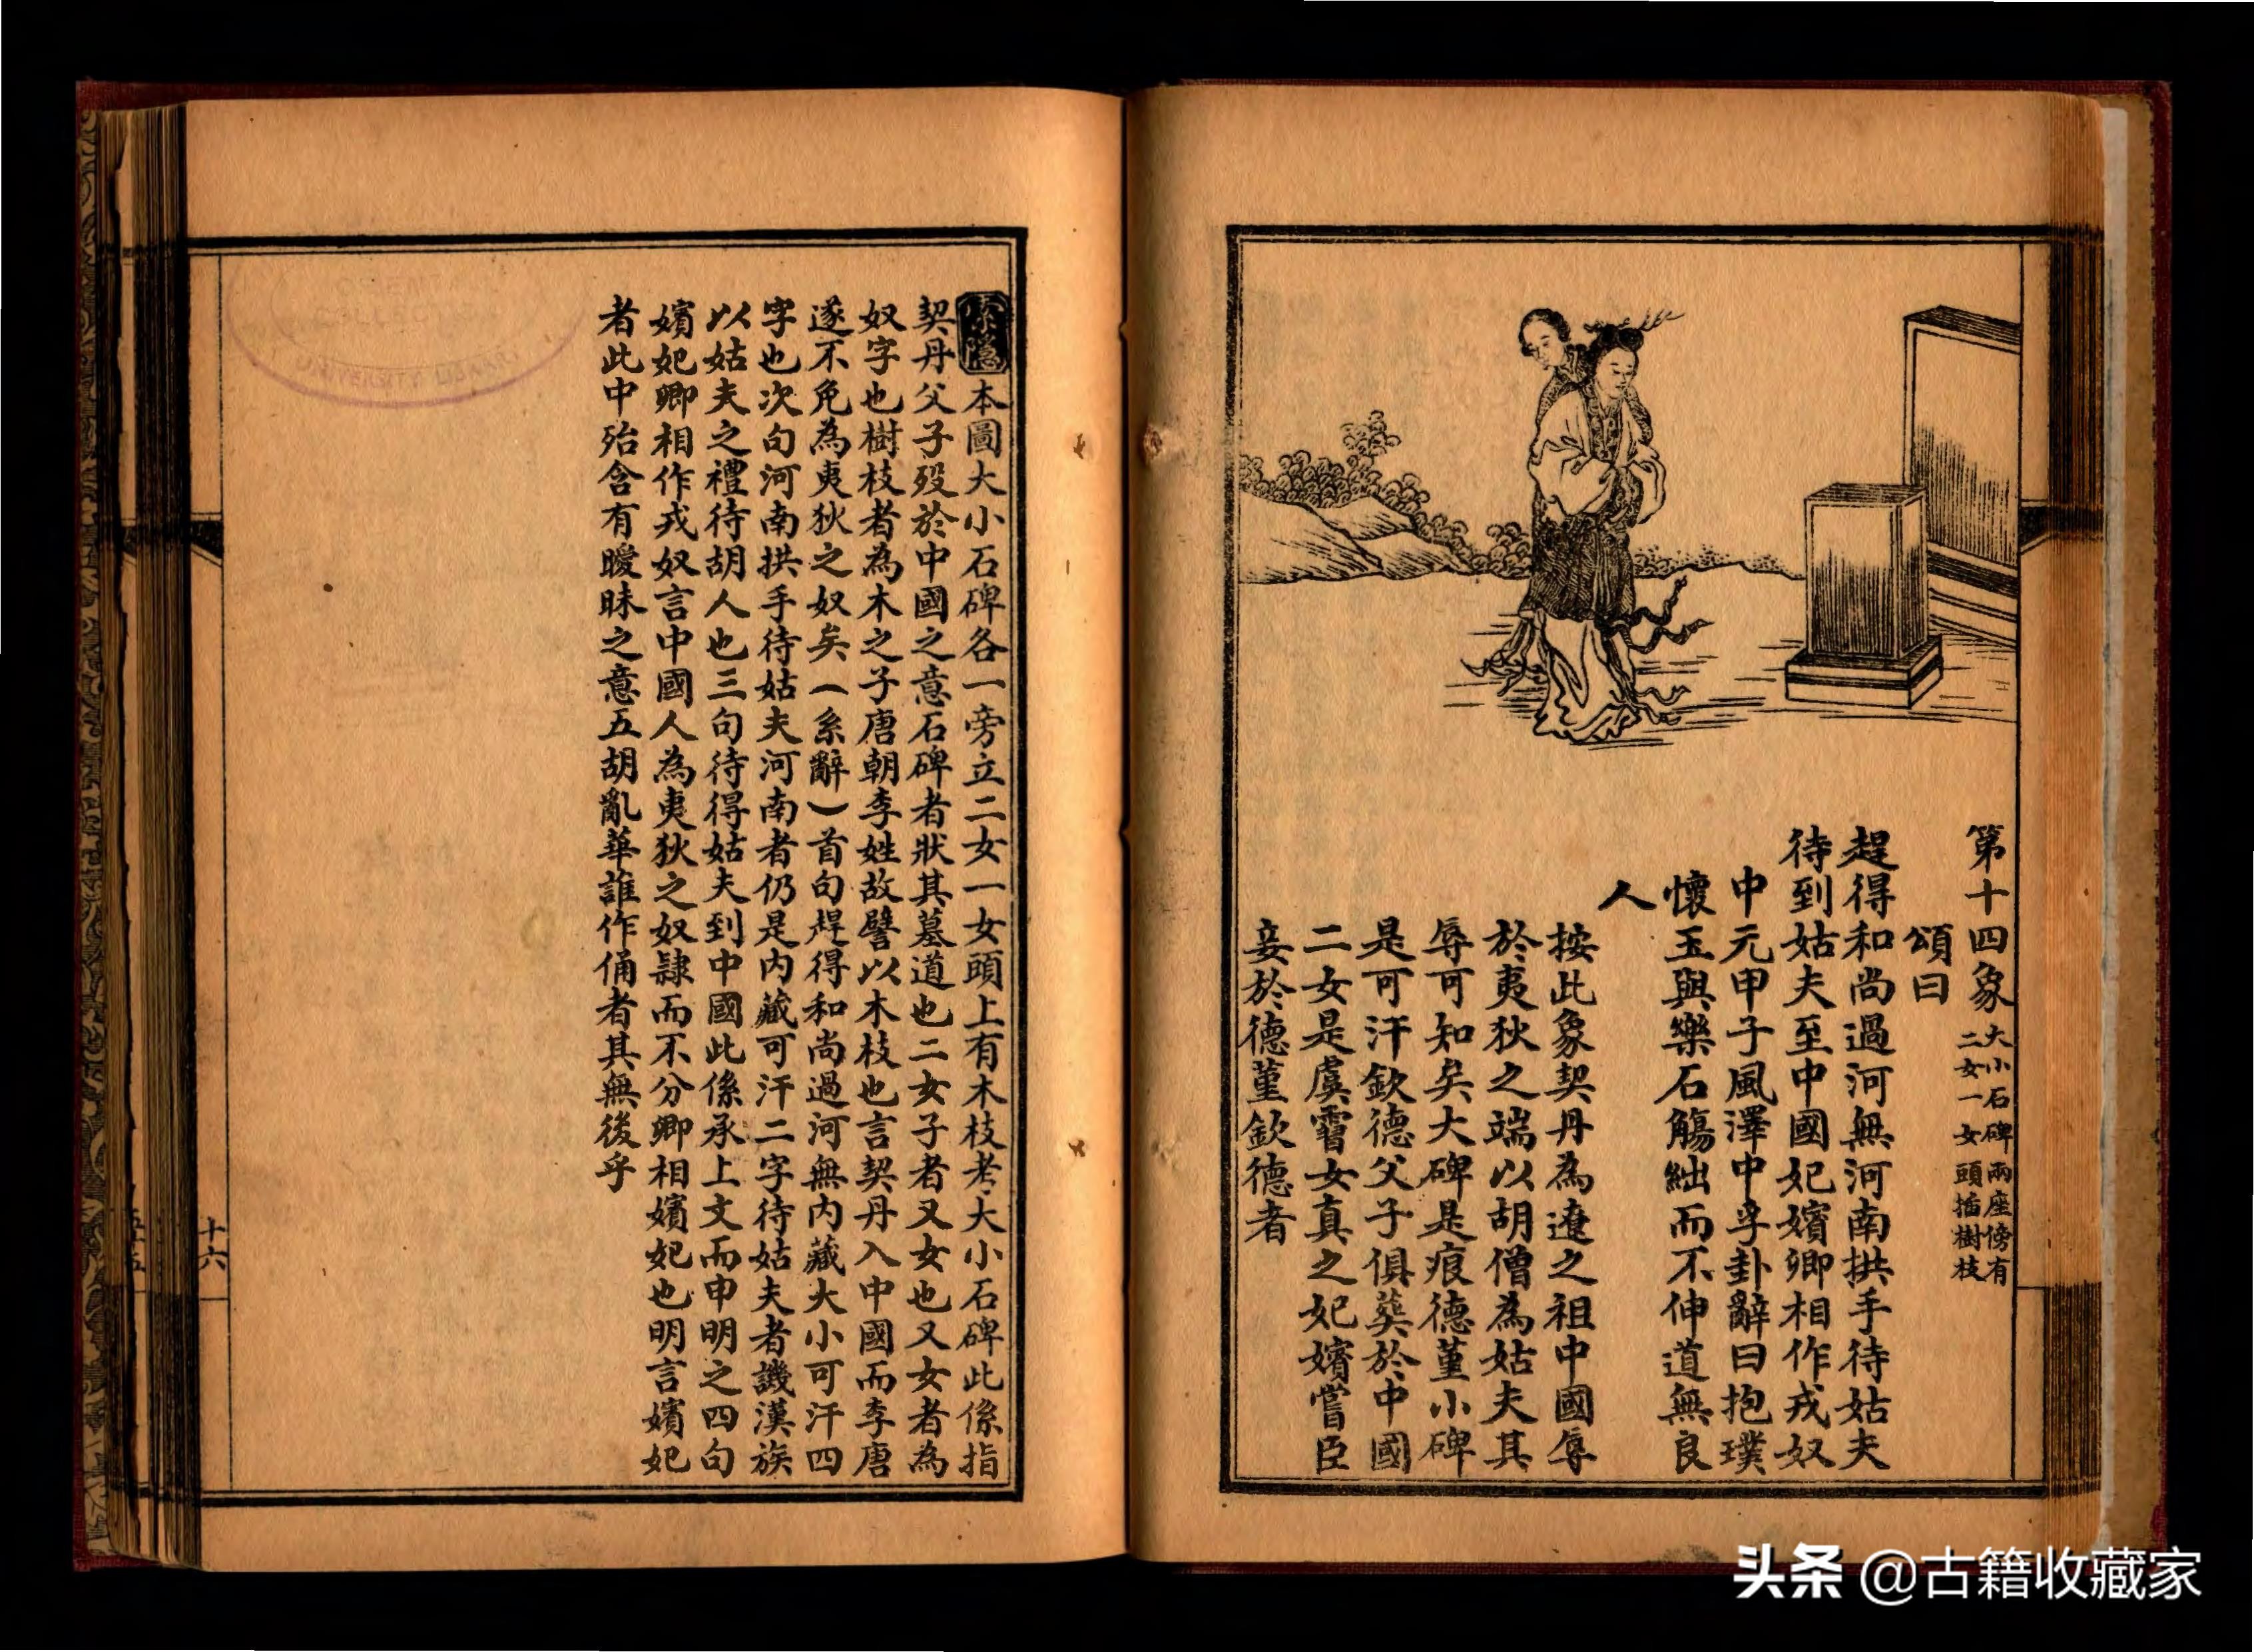 第十四象
大小石碑兩座傍有
二女一女頭插樹枝
頌曰
趕得和尚過河無河南拱手待姑夫
待到姑夫至中國妃嬪卿相作戎奴
中元甲子風澤中孚卦辭曰抱璞
懷玉與樂石觴絀而不伸道無良
人
按此象契丹為遼之祖中國辱
於夷狄之端以胡僧為姑夫其
辱可知矣大碑是痕德堇小碑
是可汗欽德父子俱葬於中國
二女是虞霫女真之妃嬪嘗臣
妾於德堇欽德者
索隱
本圖大小石碑各一旁立二女一女頭上有木枝考大小石碑此係指
契丹父子歿於中國之意石碑者狀其墓道也二女子者又女也又女者為
奴字也樹枝者為木之子唐朝李姓故譬以木枝也言契丹入中國而李唐
遂不免為夷狄之奴矣（系辭）首句趕得和尚過河無內藏大小可汗四
字也次句河南拱手待姑夫河南者仍是內藏可汗二字待姑夫者譏漢族
以姑夫之禮待胡人也三句待得姑夫到中國此係承上文而申明之四句
嬪妃卿相作戎奴言中國人為夷狄之奴隸而不分卿相嬪妃也明言嬪妃
者此中殆含有曖昧之意五胡亂華誰作俑者其無後乎
十六
头条 @古籍收藏家